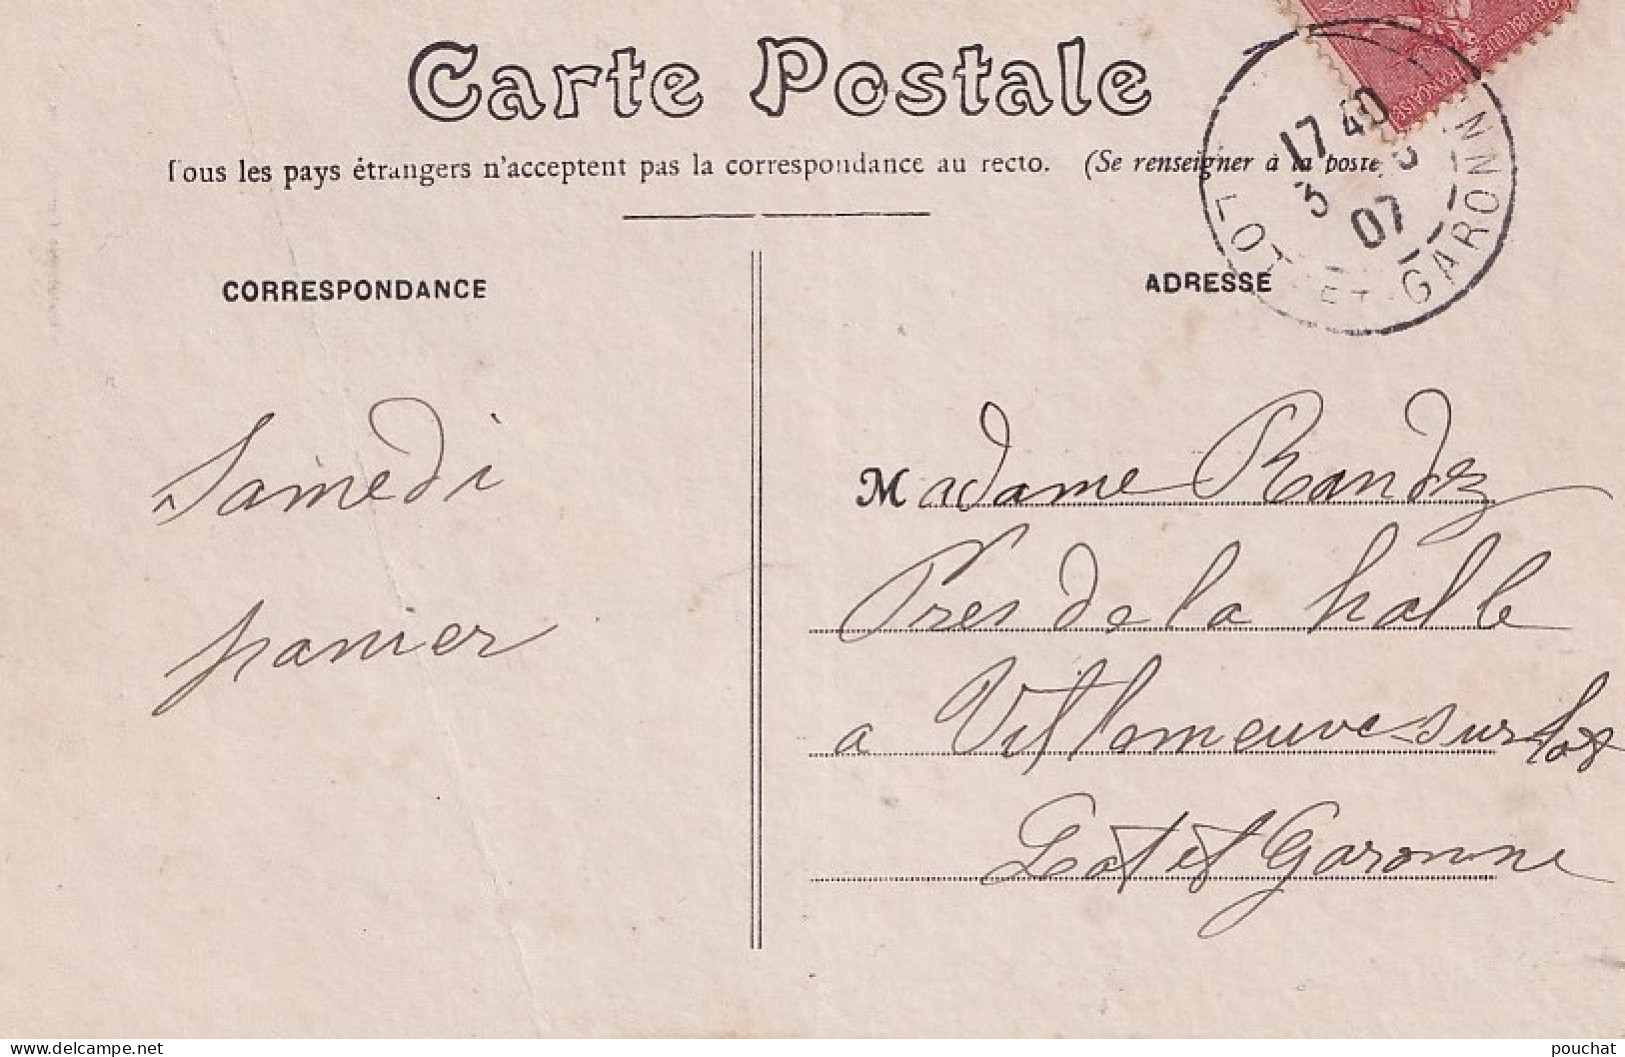 Carte Postale
Tous les pays étrangers n'acceptent pas la correspondance au recto. (Se renseigner à la poste
RÉPUBLIQUE FRANÇAISE
17 40
3
07
LOT-ET-GARONNE
CORRESPONDANCE
ADRESSE
Samedi
panier
Madame Randez
Pres de la halle
a Villeneuve sur Lot
Lot et Garonne
www.delcampe.net
pouchat